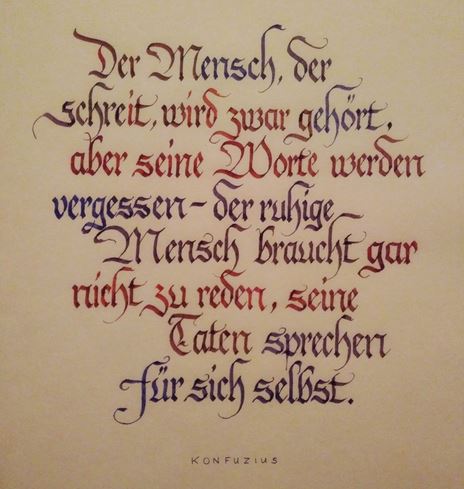 Der Mensch, der
schreit, wird zwar gehört,
aber seine Worte werden
vergessen – der ruhige
Mensch braucht gar
nicht zu reden, seine
Taten sprechen
für sich selbst.
KONFUZIUS